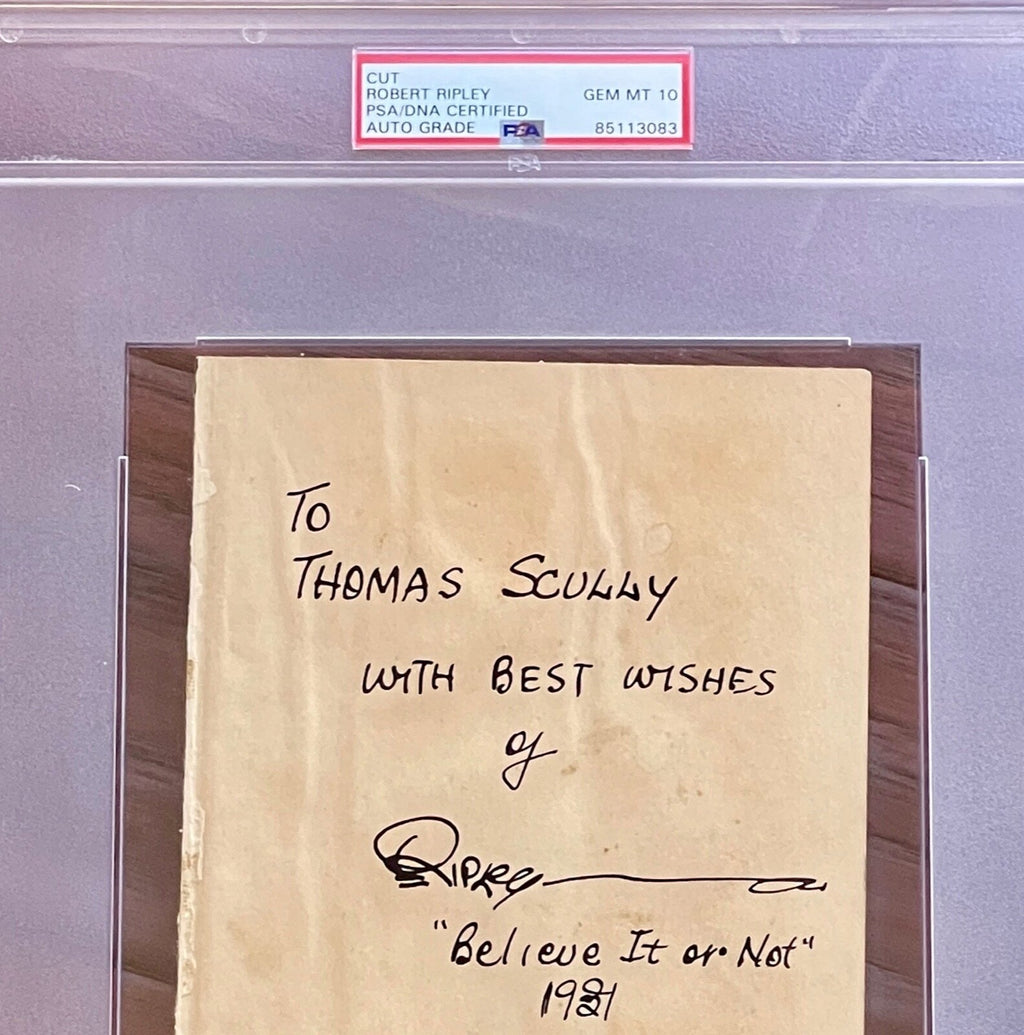 CUT
ROBERT RIPLEY GEM MT 10
PSA/DNA CERTIFIED
AUTO GRADE PSA 85113083
PSA
To
THOMAS SCULLY
WITH BEST WISHES
of
RIPLEY
"Believe It or Not"